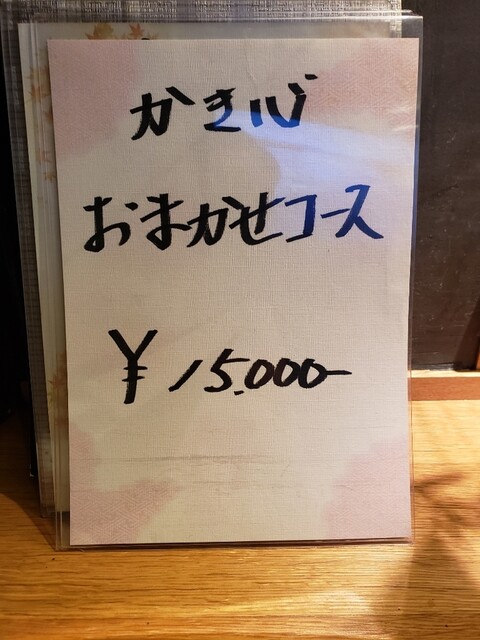 かき心
おまかせコース
¥15.000-